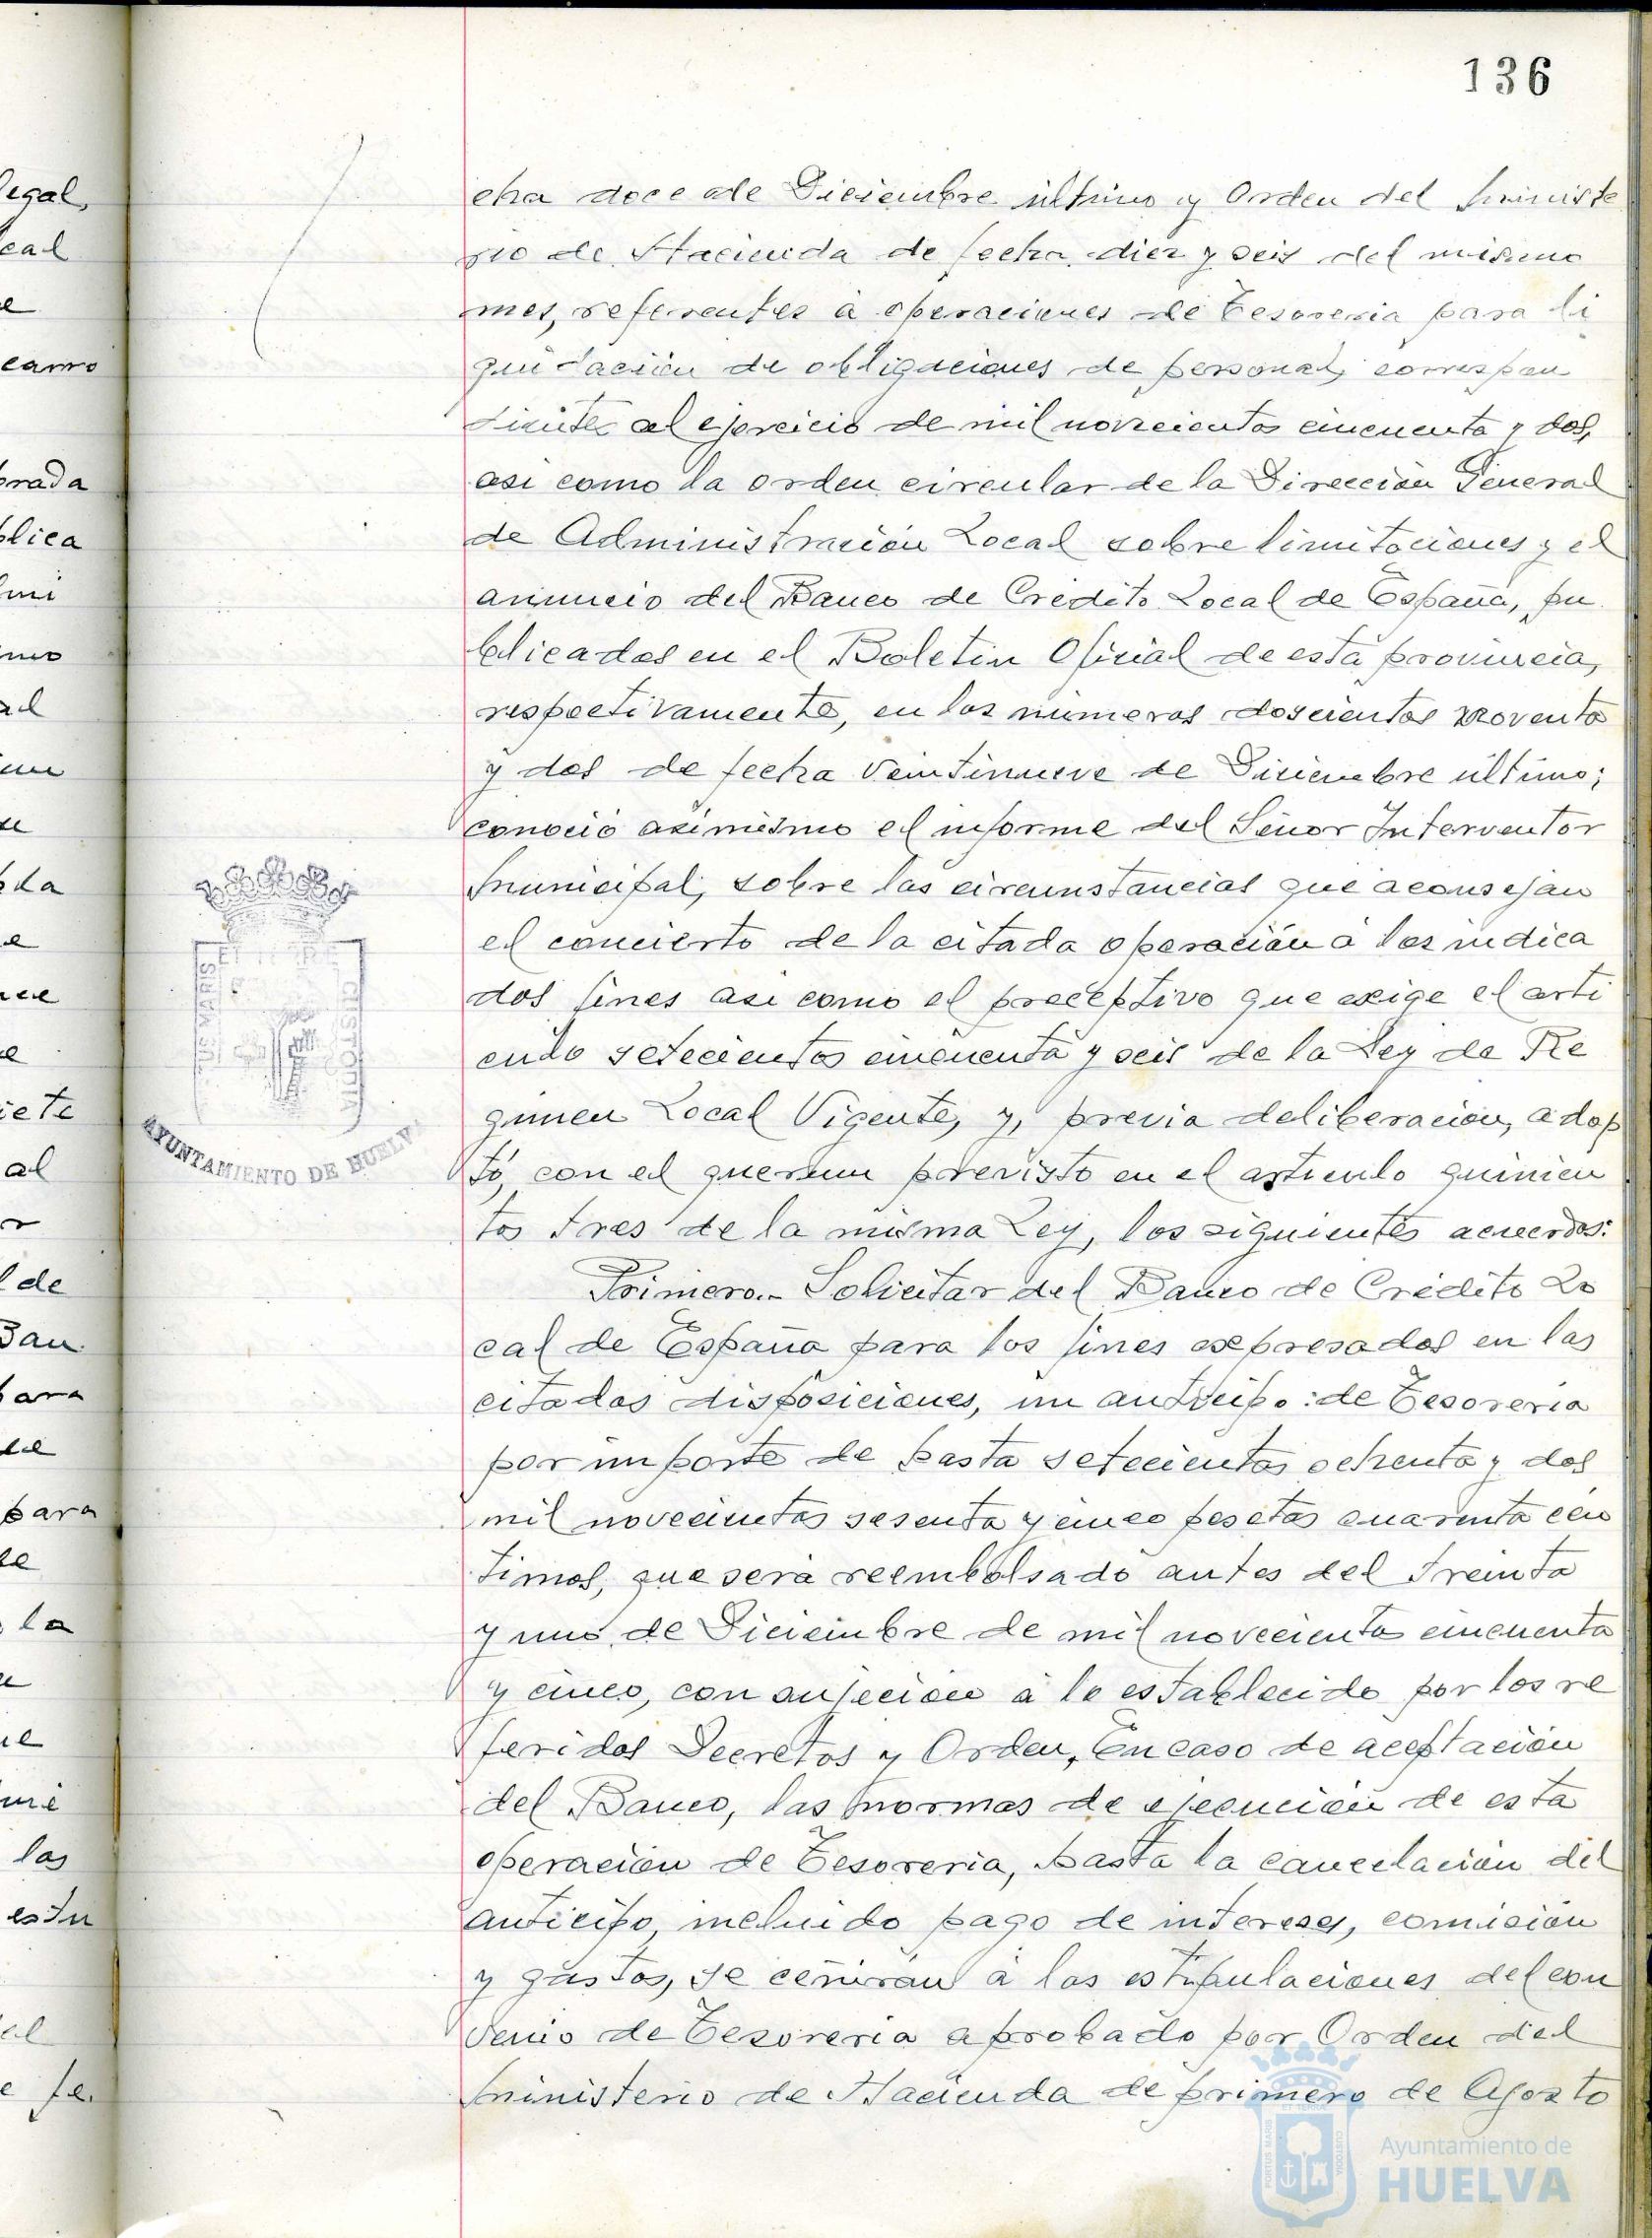 136
cha doce de Diciembre último y Orden del Ministe
rio de Hacienda de fecha diez y seis del mismo
mes, referentes á operaciones de Tesoreria para li
quidación de obligaciones de personal, correspon
dientes al ejercicio de mil novecientos cincuenta y dos,
asi como la orden circular de la Dirección General
de Administración Local sobre limitaciones y el
anuncio del Banco de Crédito Local de España, pu
blicados en el Boletin Oficial de esta provincia,
respectivamente, en los números doscientos noventa
y dos de fecha veintinueve de Diciembre último;
conoció asimismo el informe del Señor Interventor
Municipal, sobre las circunstancias que aconsejan
el concierto de la citada operación á los indica
dos fines asi como el preceptivo que exige el arti
culo setecientos cincuenta y seis de la Ley de Re
gimen Local Vigente, y, previa deliberación, adop
tó, con el querum previsto en el articulo quinien
tos tres de la misma Ley, los siguientes acuerdos:
Primero.- Solicitar del Banco de Crédito Lo
cal de España para los fines expresados en las
citadas disposiciones, un anticipo de Tesoreria
por importe de hasta setecientas ochenta y dos
mil novecientas sesenta y cinco pesetas cuarenta cén
timos, que será reembolsado antes del treinta
y uno de Diciembre de mil novecientos cincuenta
y cinco, con sujeción á lo establecido por los re
feridos Decretos y Orden, En caso de aceptación
del Banco, las normas de ejecución de esta
operación de Tesoreria, hasta la cancelación del
anticipo, incluido pago de intereses, comisión
y gastos, se ceñirán á las estipulaciones del con
venio de Tesoreria aprobado por Orden del
Ministerio de Hacienda de primero de Agosto
AYUNTAMIENTO DE HUELVA
egal,
cal
carro
rada
blica
iete
al
l de
Ban
para
la
las
estu
fe.
Ayuntamiento de
HUELVA